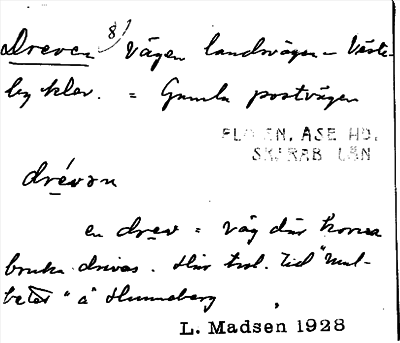 Dreven 8) Vägen landsvägen - Väste-
by klev. = Gamla postvägen
FLO SN, ÅSE HD.
SKARAB. LÄN
drévən
en drev = väg där korna
bruka drivas. Här trol. till "mul-
betet" å Hunneberg
L. Madsen 1928